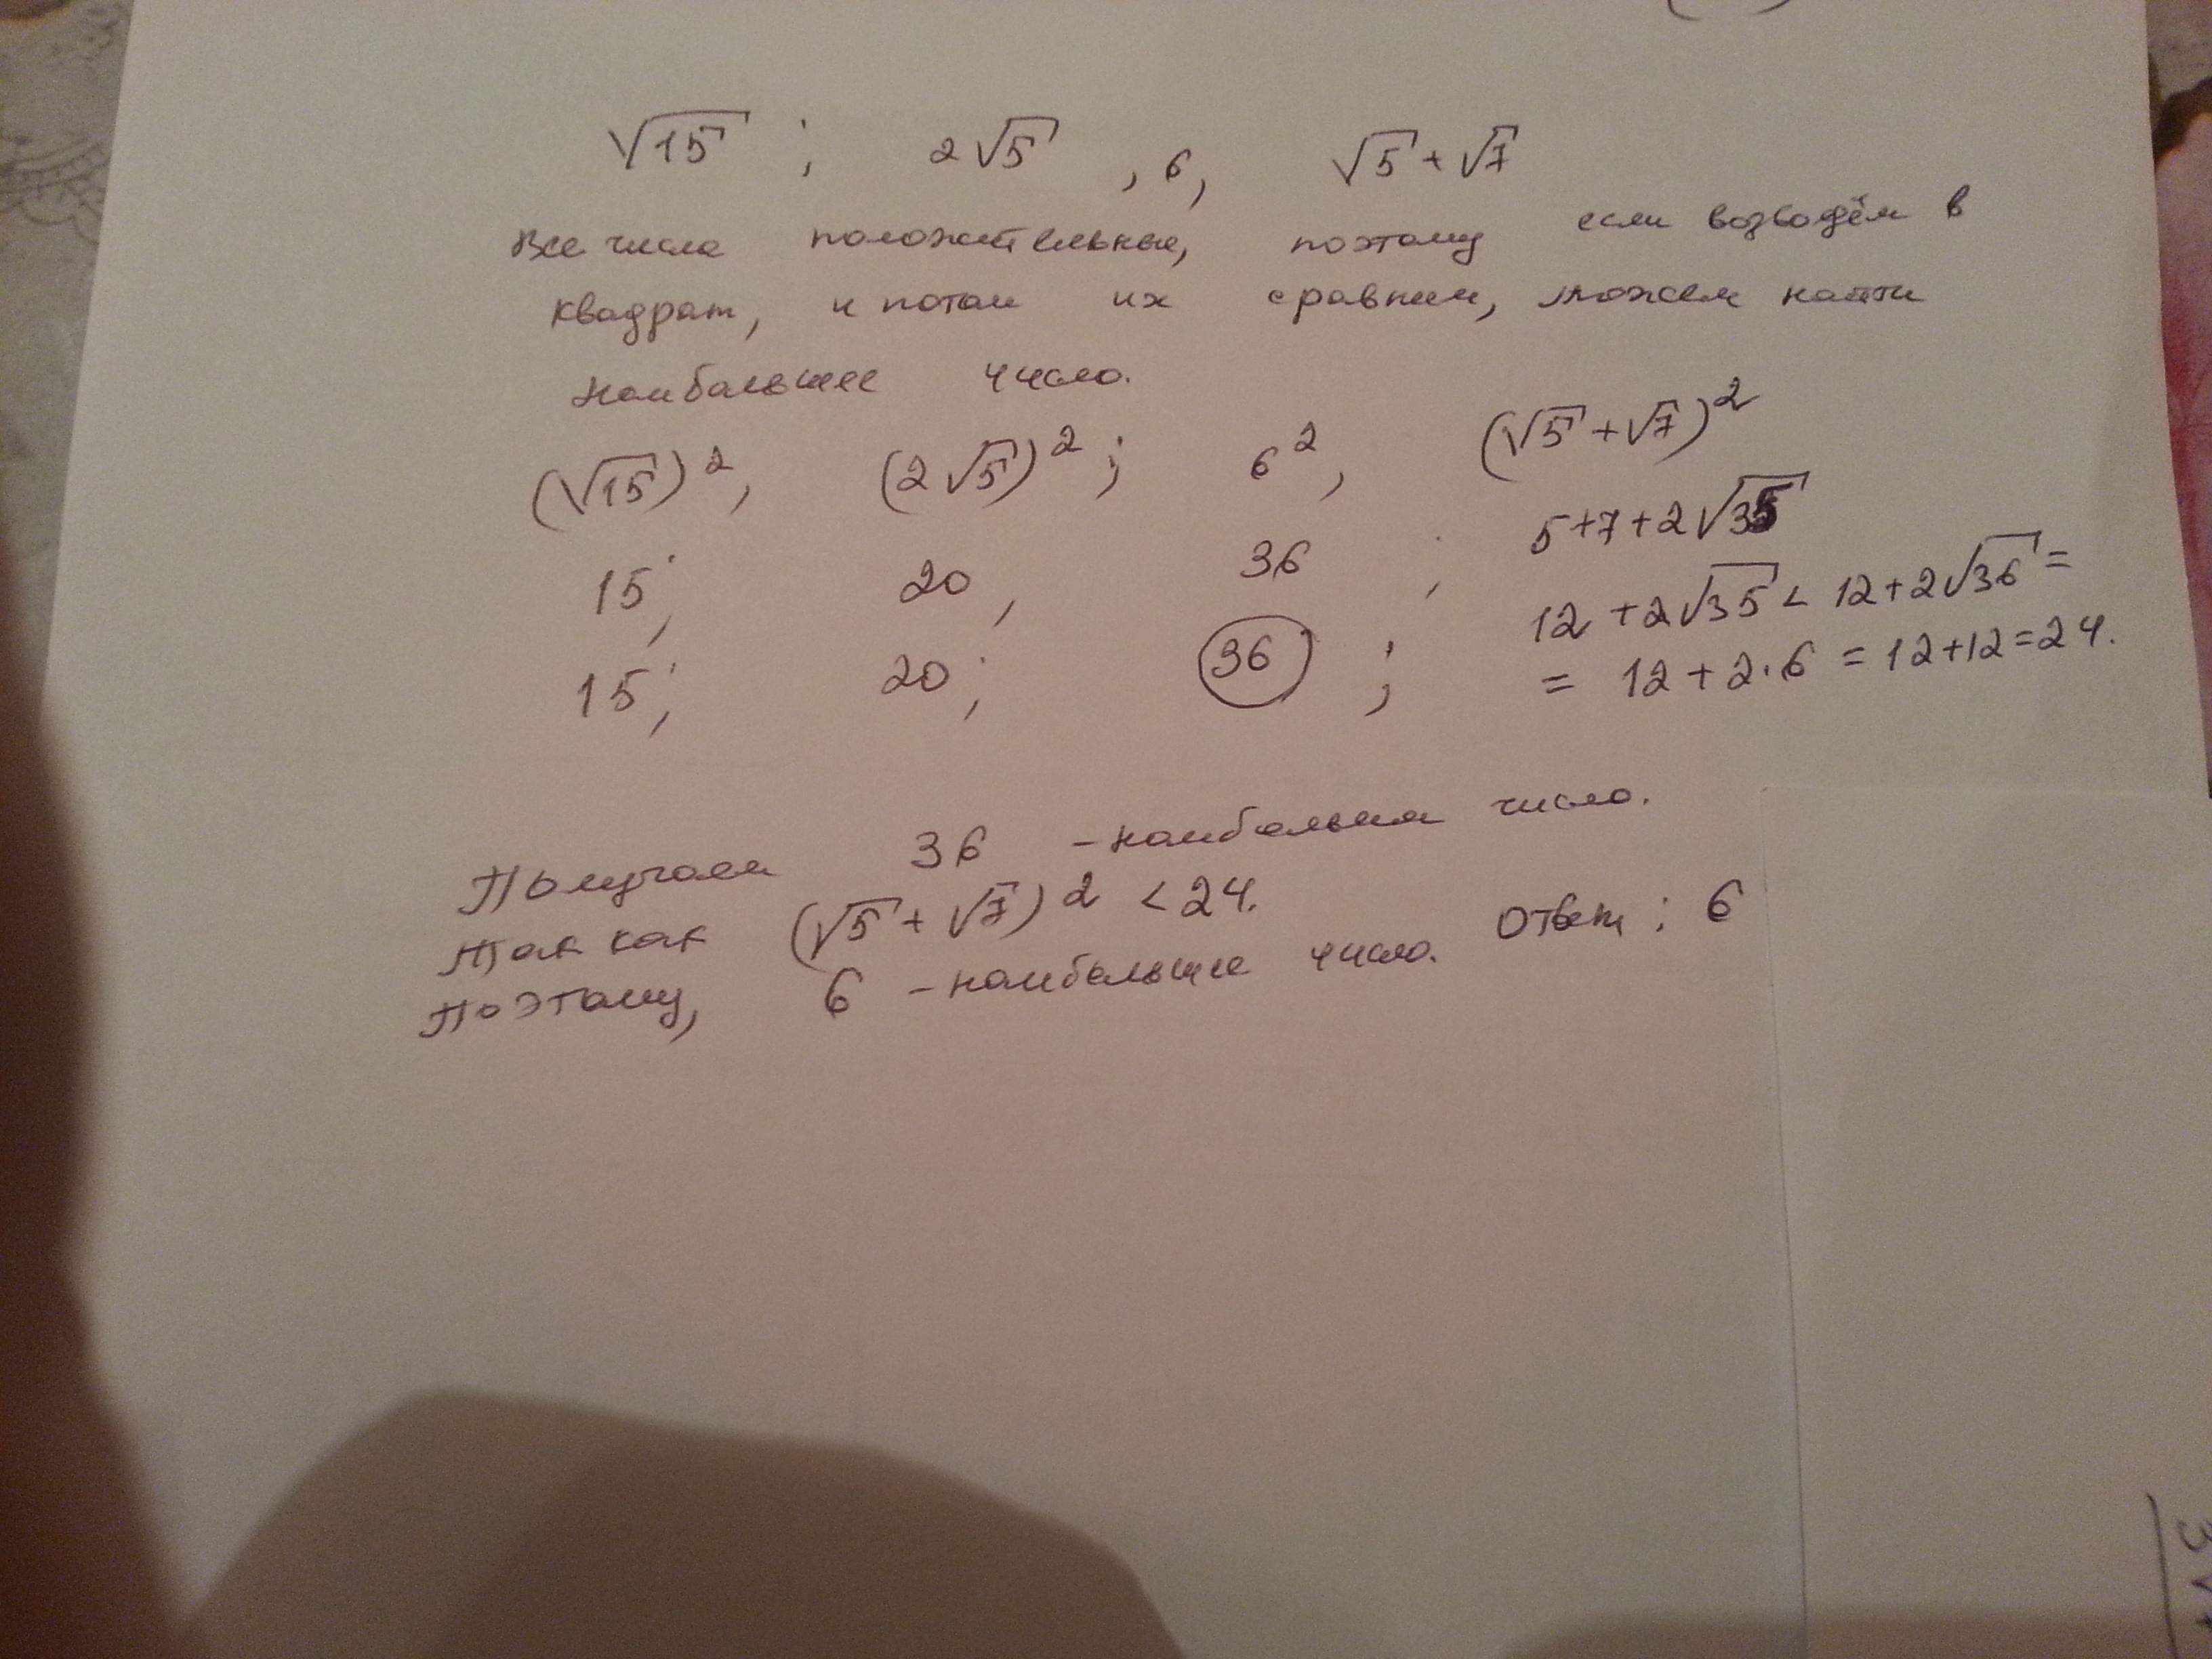 √15 ; 2√5 , 6, √5 + √7
Все числа положительные, поэтому если возводём в
квадрат, и потом их сравним, можем найти
наибольшее число.
(√15)², (2√5)² ; 6², (√5 + √7)²
15; 20, 36 ; 5+7+2√35
12 + 2√35 < 12 + 2√36 =
15; 20; 36 ; = 12 + 2·6 = 12+12=24.
Получаем 36 - наибольшее число.
Так как (√5 + √7)² < 24.
Поэтому, 6 - наибольшее число. Ответ : 6
3√